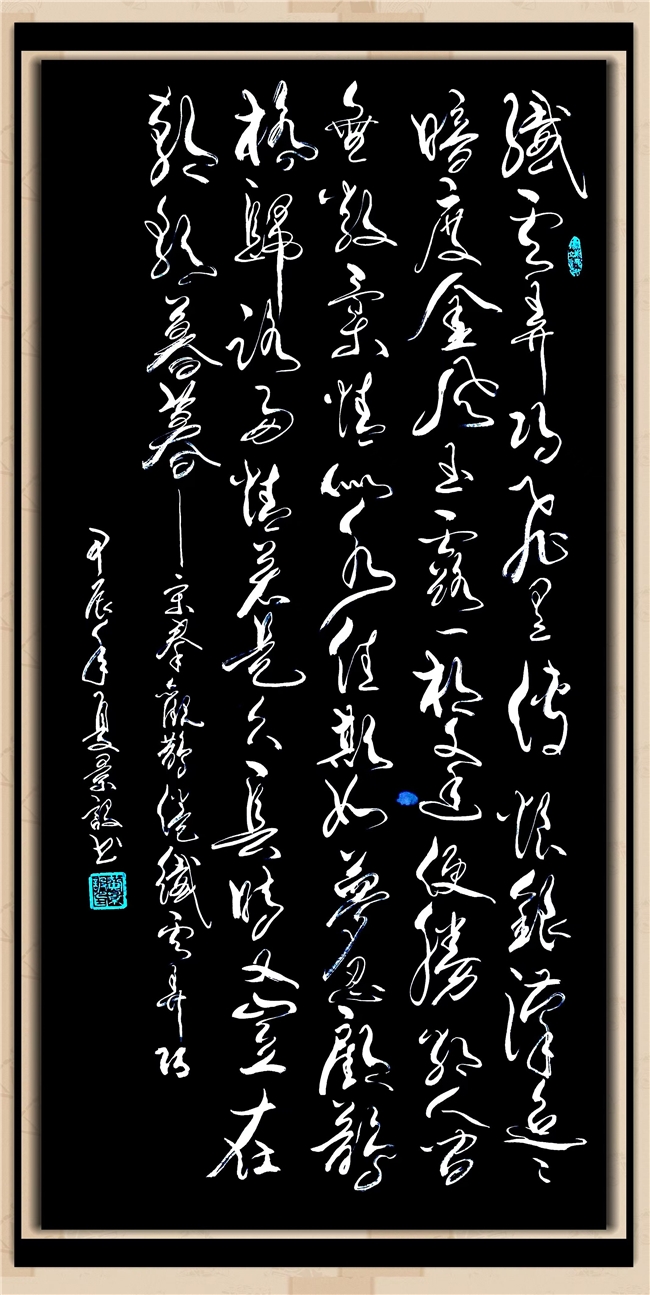 纖云弄巧飛星傳恨銀漢迢迢
暗度金風玉露一相逢便勝卻人間
無數柔情似水佳期如夢忍顧鵲
橋歸路兩情若是久長時又豈在
朝朝暮暮——宋秦觀鵲僊纖云弄巧
甲辰年夏景书